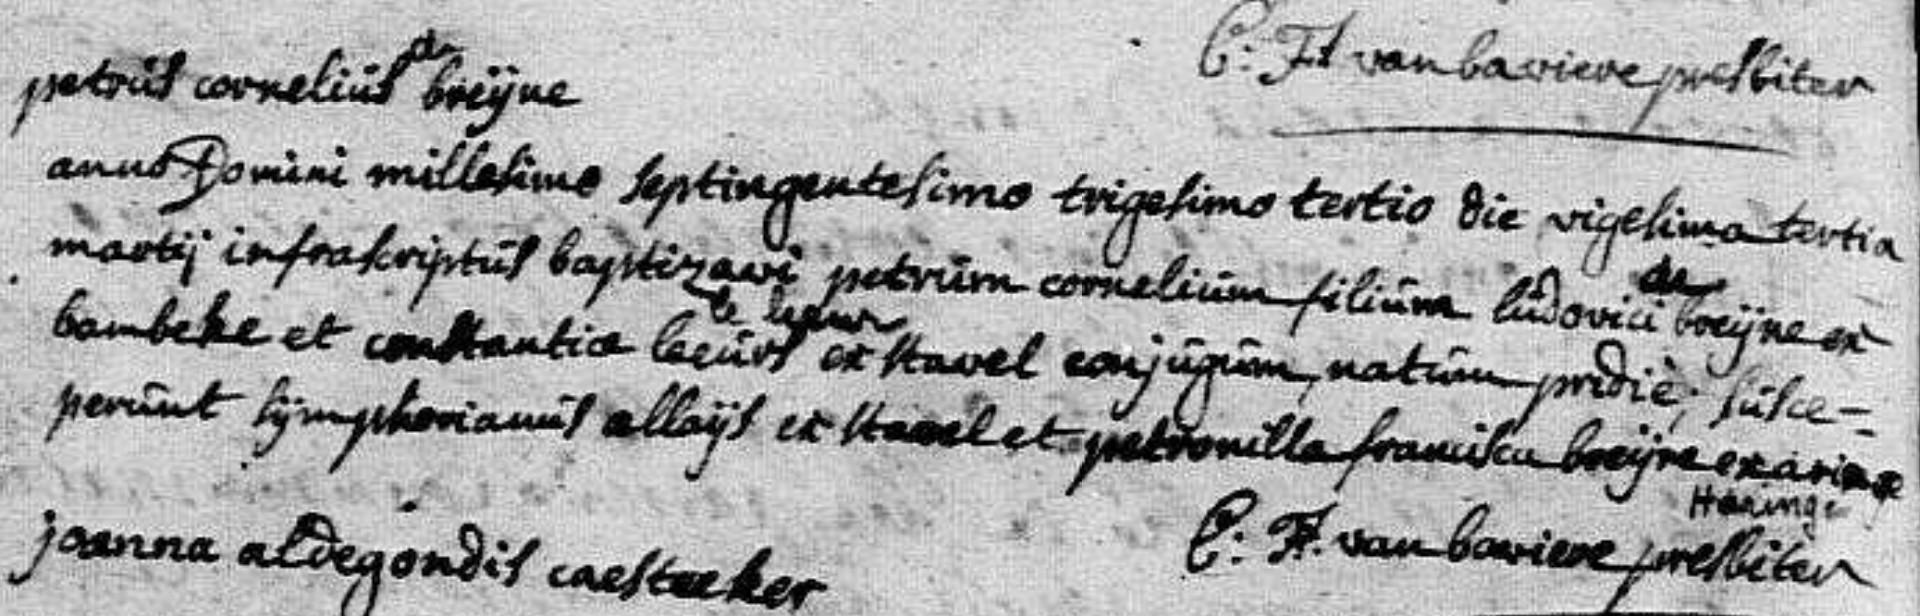 C: F: van baviere presbiter
petrus cornelius de breÿne
anno Domini millesimo septingentesimo trigesimo tertio die vigesima tertia
martij infrascriptus baptizavi petrum cornelium filium ludovici de breÿne ex
bambeke et constantiæ leeurs le leeuw ex stavel conjugum, natum pridiè; susce=
perunt sÿmphorianus allaÿs ex stavel et petronilla francisca breÿne ex
Haringe
C: F. van baviere presbiter
joanna aldegondis caesteeker